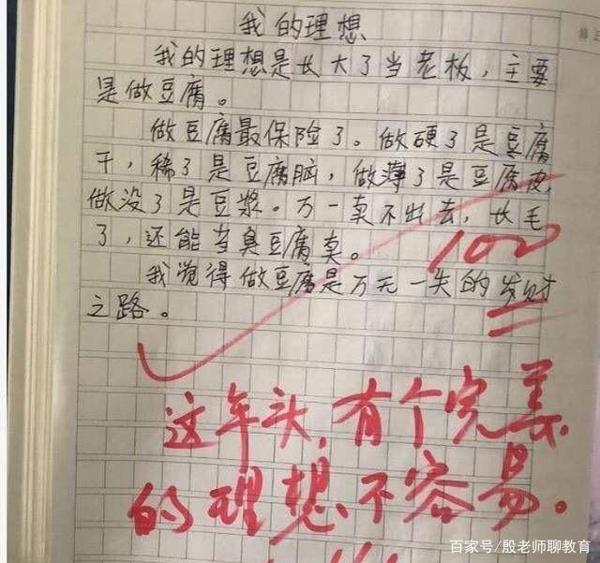 我的理想
我的理想是长大了当老板，主要
是做豆腐。
做豆腐最保险了。做硬了是豆腐
干，稀了是豆腐脑，做薄了是豆腐皮，
做没了是豆浆。万一卖不出去，长毛
了，还能当臭豆腐卖。
我觉得做豆腐是万无一失的发财
之路。
100
这年头，有个完美
的理想不容易。
百家号/殷老师聊教育